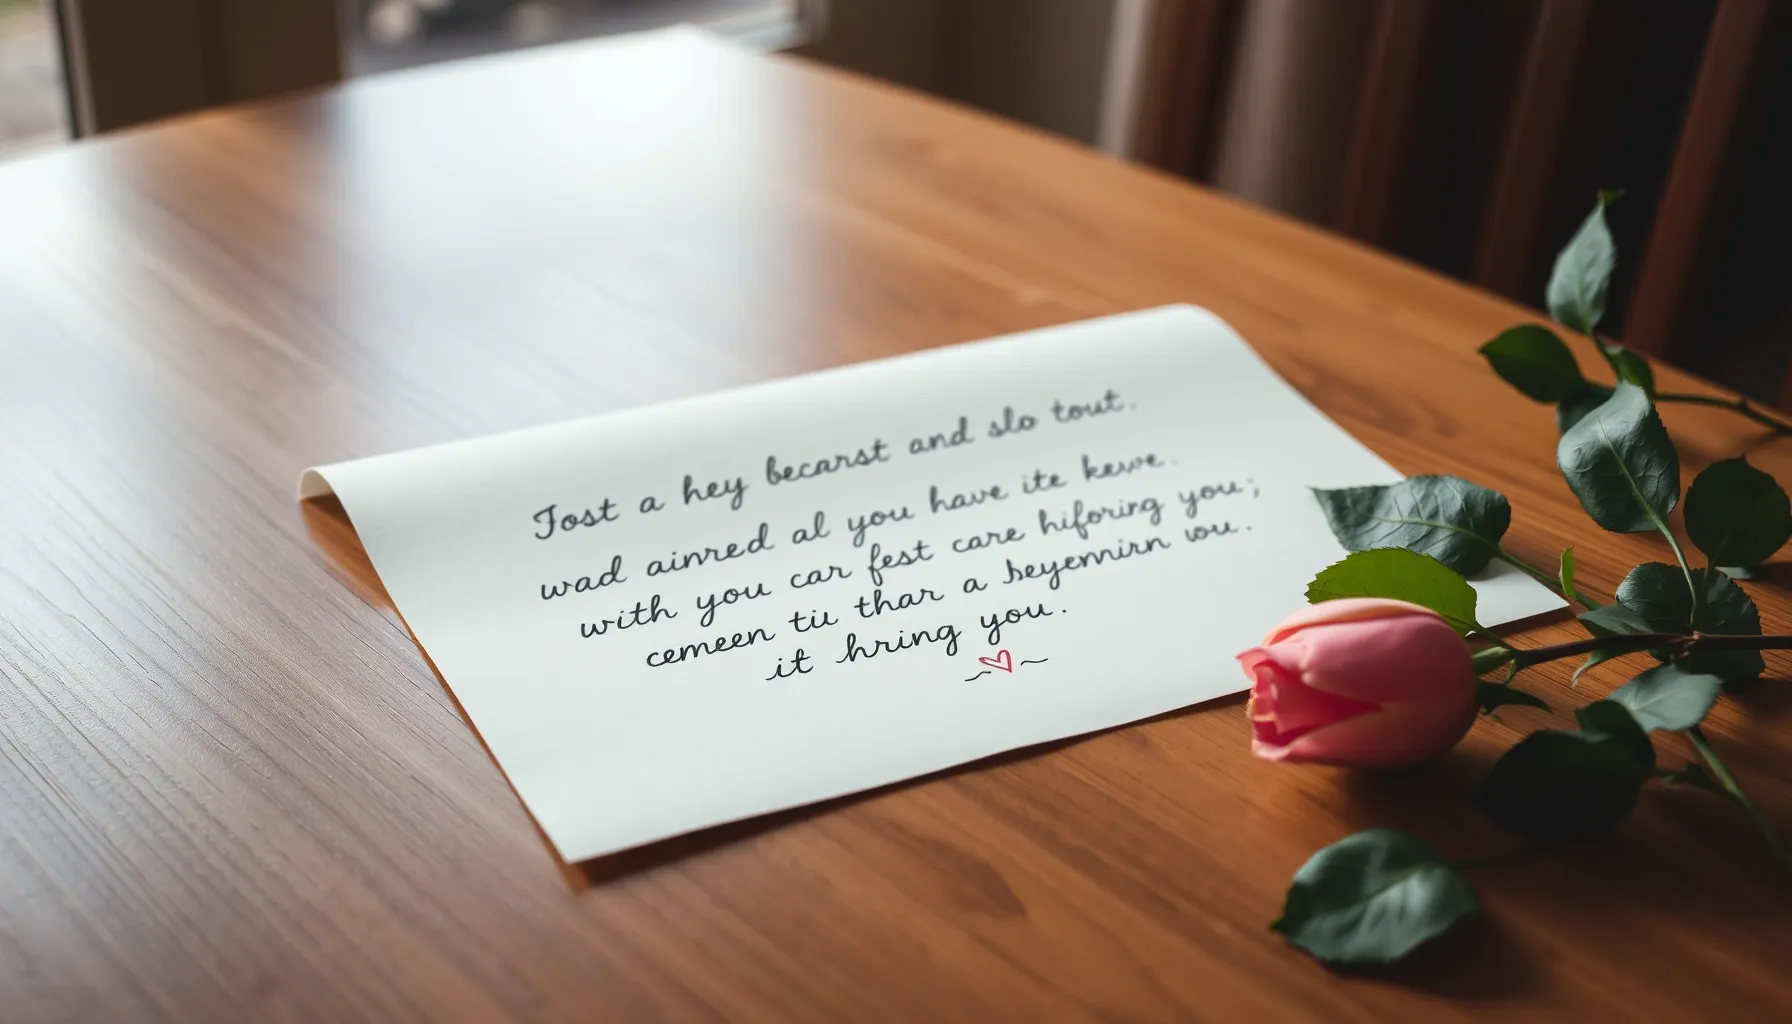 Tost a hey becarst and slo tout.
wad ainred al you have ite kewe.
with you car fest care hiforing you;
cemeen tii thar a beyemnirn wou.
it hring you.